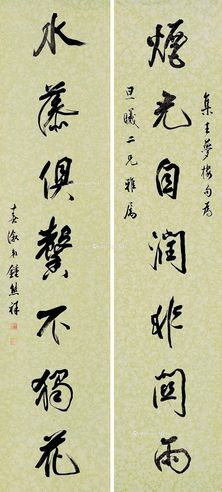 集王夢樓句為
煙光自潤非關雨
旦曦二兄雅屬
水藻俱馨不獨花
鍾熊祥